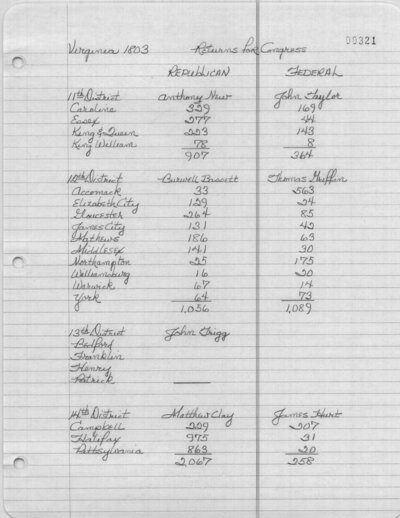 00321
Virginia 1803 Returns for Congress
REPUBLICAN FEDERAL
11th District Anthony New John Taylor
Caroline 329 169
Essex 277 44
King & Queen 223 143
King William 78 8
907 364
12th District Burwell Bassett Thomas Griffin
Accomack 33 563
Elizabeth City 129 24
Gloucester 264 85
James City 131 42
Mathews 186 63
Middlesex 141 30
Northampton 25 175
Williamsburg 16 20
Warwick 67 14
York 64 73
1,056 1,089
13th District John Trigg
Bedford
Franklin
Henry
Patrick
14th District Matthew Clay James Hurt
Campbell 229 207
Halifax 975 31
Pittsylvania 863 20
2,067 258